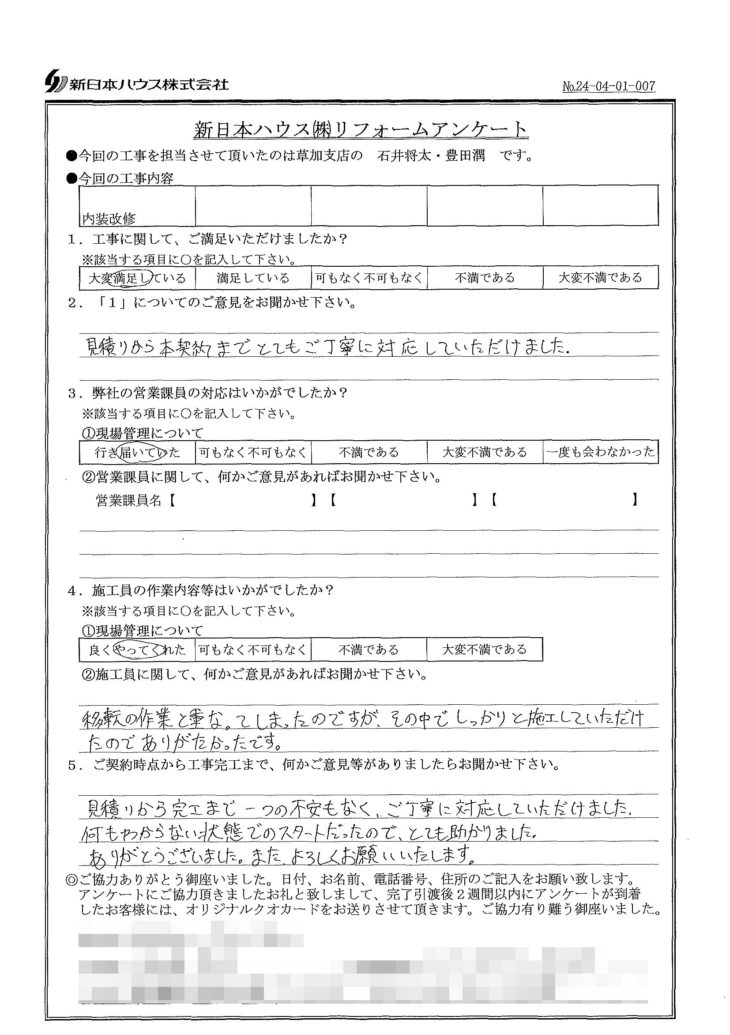 新日本ハウス株式会社
№24-04-01-007
新日本ハウス㈱リフォームアンケート
●今回の工事を担当させて頂いたのは草加支店の 石井将太・豊田潤 です。
●今回の工事内容
内装改修
1．工事に関して、ご満足いただけましたか？
※該当する項目に○を記入して下さい。
大変満足している 満足している 可もなく不可もなく 不満である 大変不満である
2．「1」についてのご意見をお聞かせ下さい。
見積りから本契約までとてもご丁寧に対応していただけました.
3．弊社の営業課員の対応はいかがでしたか？
※該当する項目に○を記入して下さい。
①現場管理について
行き届いていた 可もなく不可もなく 不満である 大変不満である 一度も会わなかった
②営業課員に関して、何かご意見があればお聞かせ下さい。
営業課員名【 】【 】【 】
4．施工員の作業内容等はいかがでしたか？
※該当する項目に○を記入して下さい。
①現場管理について
良くやってくれた 可もなく不可もなく 不満である 大変不満である
②施工員に関して、何かご意見があればお聞かせ下さい。
移転の作業と重なってしまったのですが、その中でしっかりと施工していただけ
たのでありがたかったです。
5．ご契約時点から工事完工まで、何かご意見等がありましたらお聞かせ下さい。
見積りから完工まで一つの不安もなく、ご丁寧に対応していただけました.
何もわからない状態でのスタートだったので、とても助かりました.
ありがとうございました。また、よろしくお願いいたします。
◎ご協力ありがとう御座いました。日付、お名前、電話番号、住所のご記入をお願い致します。
アンケートにご協力頂きましたお礼と致しまして、完了引渡後2週間以内にアンケートが到着
したお客様には、オリジナルクオカードをお送りさせて頂きます。ご協力有り難う御座いました。